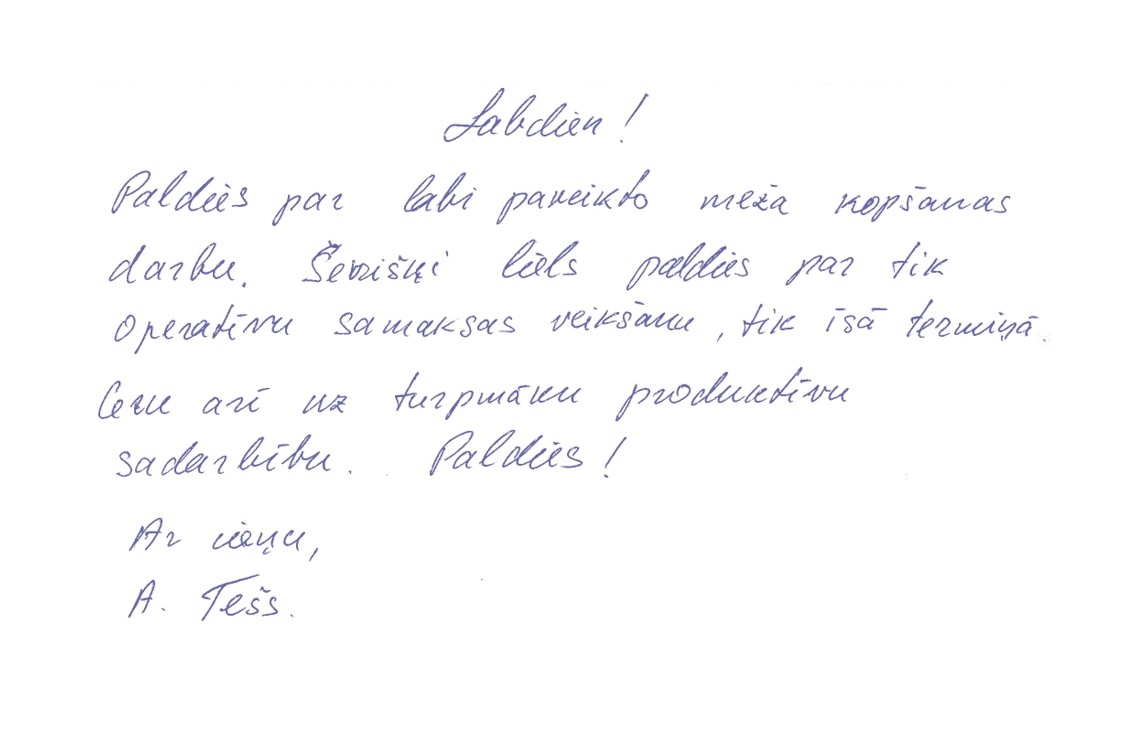 Labdien!
Paldies par labi paveikto meža kopšanas
darbu. Sevišķi liels paldies par tik
operatīvu samaksas veikšanu, tik īsā termiņā.
Ceru arī uz turpmāku produktīvu
sadarbību. Paldies!
Ar cieņu,
A. Tešs.